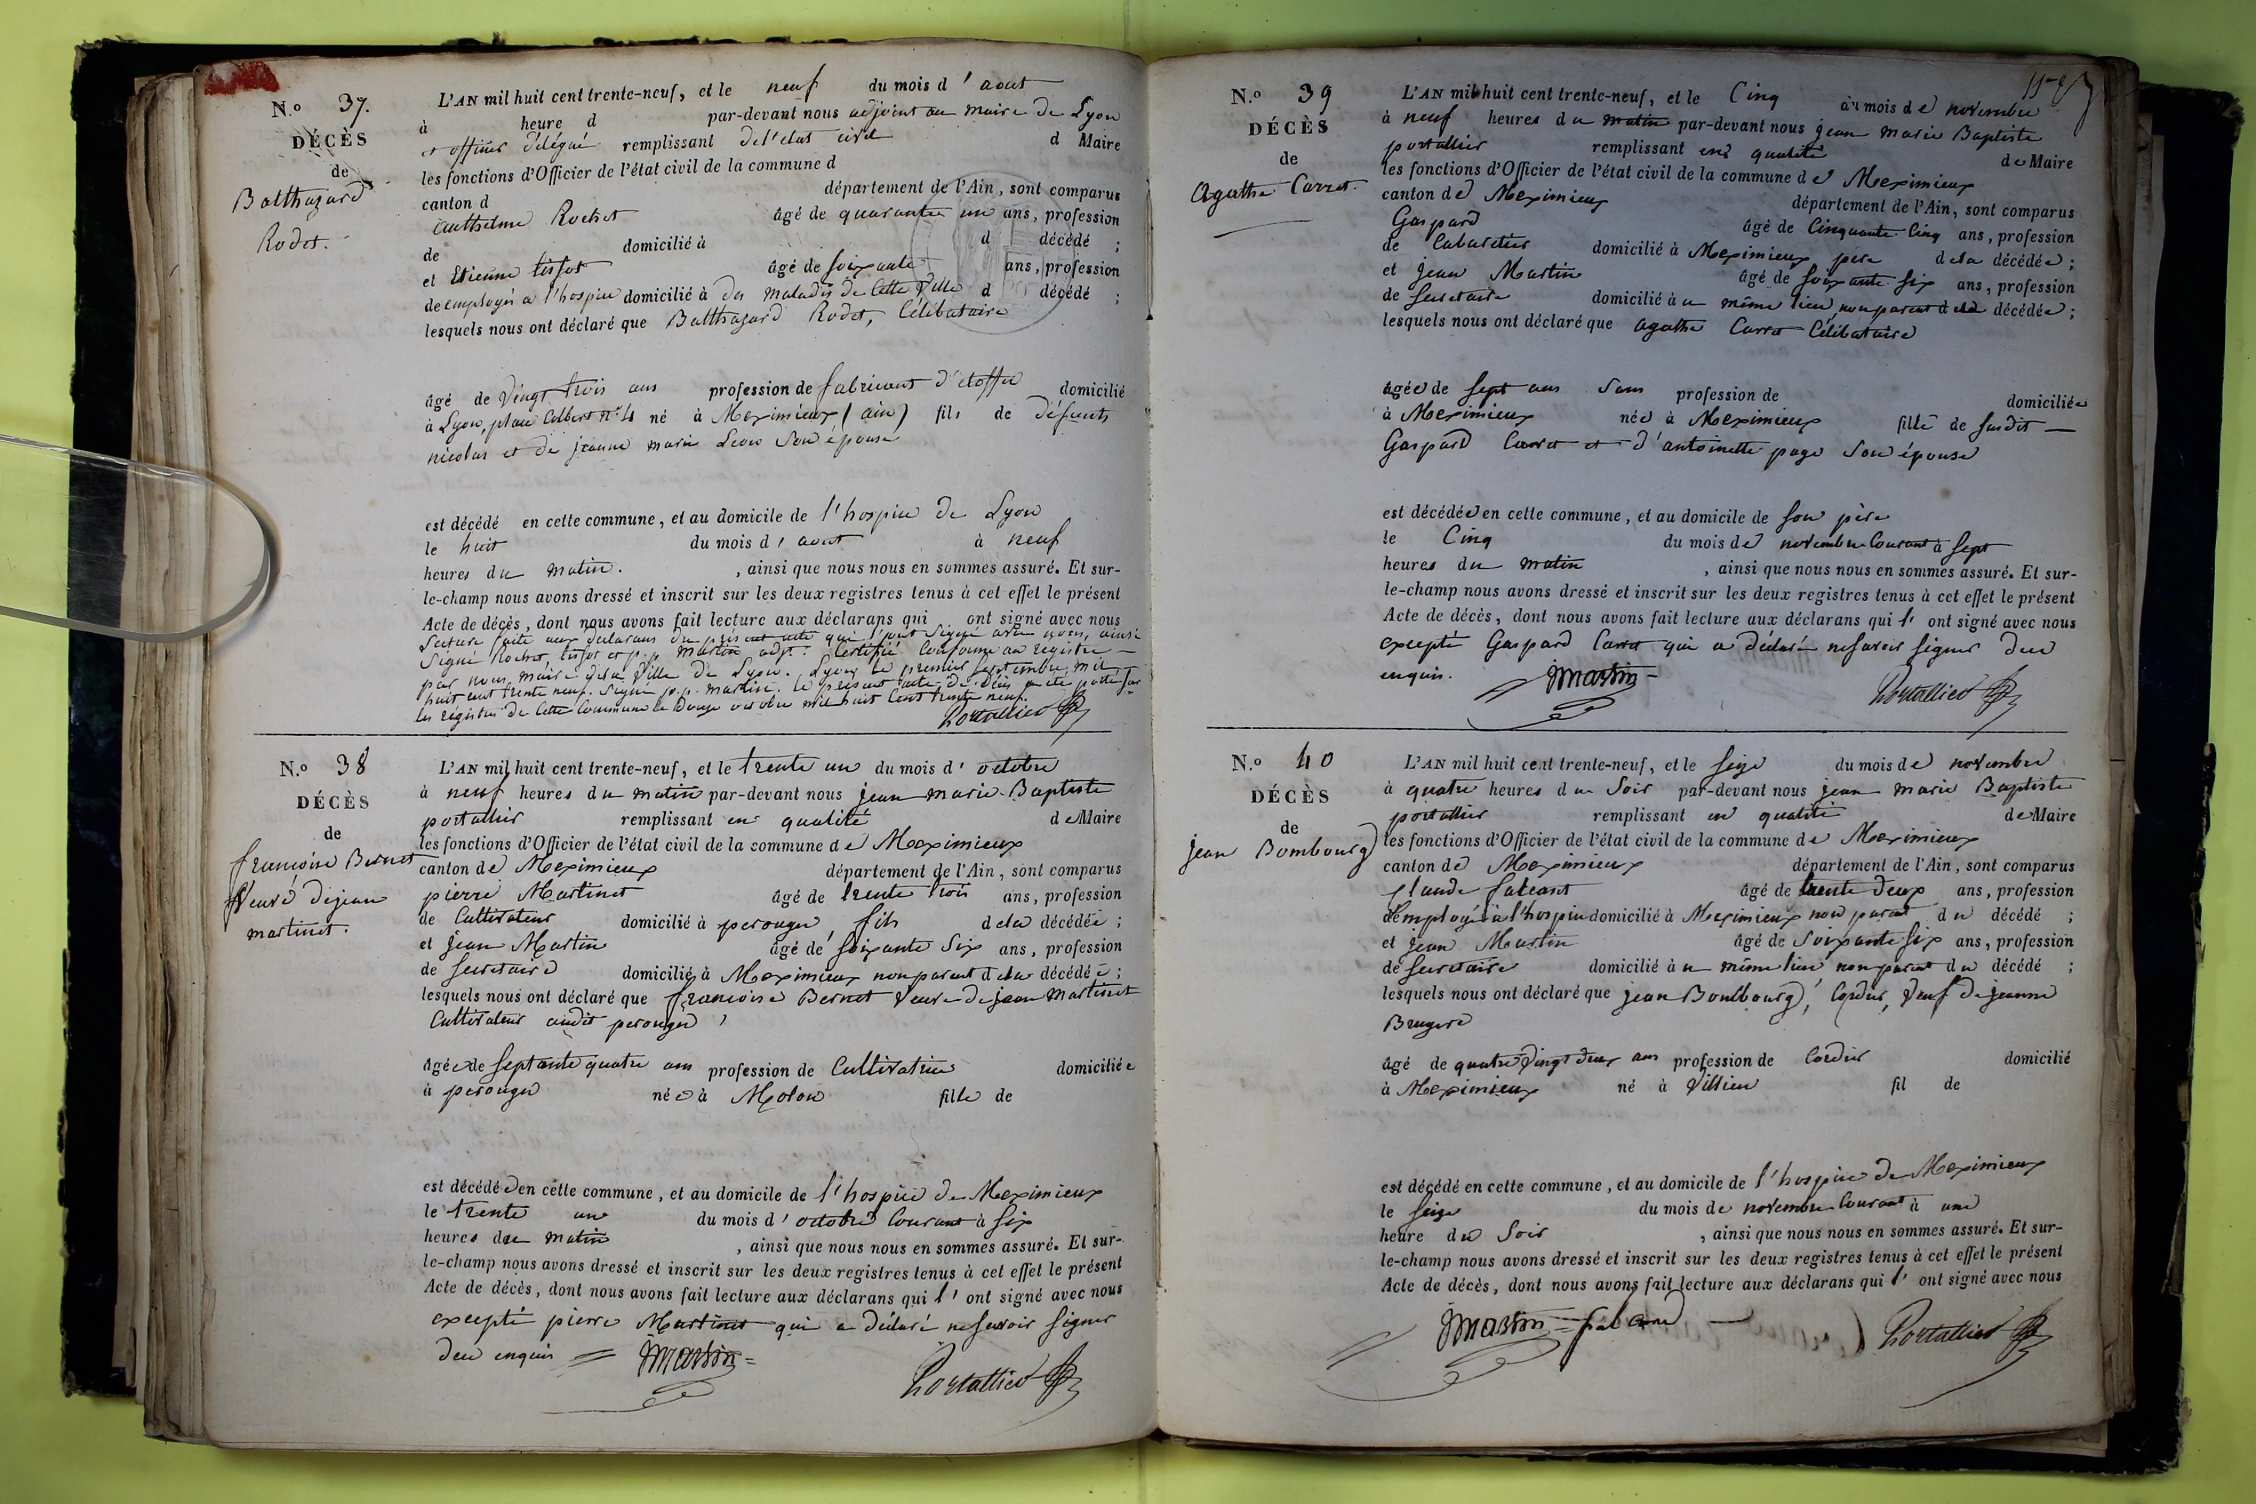 N.º 37.
DÉCÈS
de
Balthazard
Rodet.
L'AN mil huit cent trente-neuf, et le neuf du mois d'aout
à heure d par-devant nous adjoint au maire de Lyon
et officier délégué remplissant de l'état civil d Maire
les fonctions d'Officier de l'état civil de la commune d
canton d département de l'Ain, sont comparus
anthelme Rochet âgé de quarante un ans, profession
de domicilié à d décédé ;
et Etienne tissot âgé de soixante ans, profession
de employés a l'hospice domicilié à des malades de Cette Ville d décédé ;
lesquels nous ont déclaré que Balthazard Rodet, Célibataire
âgé de Vingt trois ans profession de fabricant d'étoffe domicilié
à Lyon, place Colbert nº 4 né à Meximieux (ain) fils de défunts
nicolas et de jeanne marie Leon son épouse
est décédé en cette commune, et au domicile de l'hospice de Lyon
le huit du mois d'aout à neuf
heures du matin. , ainsi que nous nous en sommes assuré. Et sur-
le-champ nous avons dressé et inscrit sur les deux registres tenus à cet effet le présent
Acte de décès, dont nous avons fait lecture aux déclarans qui ont signé avec nous
Lecture faite aux déclarans du présent acte qui l'ont signé avec nous, ainsi
Signé Rochet tissot et p.p. martin adjt. Certifié Conforme au registre
par nous maire de la Ville de Lyon. Lyon le premier septembre mil
huit cent trente neuf. Signé p.p. martin. le présent acte de décès a été porté sur
les régistres de Cette Commune le Douze octobre mil huit Cent trente neuf.
Portallier
N.º 38
DÉCÈS
de
françoise Bernet
Veuve de jean
martinet.
L'AN mil huit cent trente-neuf, et le trente un du mois d'octobre
à neuf heures du matin par-devant nous jean marie Baptiste
portallier remplissant en qualité de Maire
les fonctions d'Officier de l'état civil de la commune de Meximieux
canton de Meximieux département de l'Ain, sont comparus
pierre Martinet âgé de trente trois ans, profession
de Cultivateur domicilié à perouge, fils de la décédée ;
et jean Martin âgé de soixante Six ans, profession
de Secretaire domicilié à Meximieux non parent de la décédée ;
lesquels nous ont déclaré que françoise Bernet Veuve de jean Martinet
Cultivateur audit perouges
âgée de septante quatre ans profession de Cultivatrice domiciliée
à perouges née à Molon fille de
est décédée en cette commune, et au domicile de l'hospice de Meximieux
le trente un du mois d'octobre Courant à six
heures du matin , ainsi que nous nous en sommes assuré. Et sur-
le-champ nous avons dressé et inscrit sur les deux registres tenus à cet effet le présent
Acte de décès, dont nous avons fait lecture aux déclarans qui l'ont signé avec nous
excepté pierre Martinet qui a déclaré ne savoir signer
de ce enquis JMartin
Portallier
N.º 39
DÉCÈS
de
Agathe Carret.
L'AN mil huit cent trente-neuf, et le Cinq du mois de novembre
à neuf heures du matin par-devant nous jean marie Baptiste
portallier remplissant en qualité de Maire
les fonctions d'Officier de l'état civil de la commune de Meximieux
canton de Meximieux département de l'Ain, sont comparus
Gaspard âgé de Cinquante Cinq ans, profession
de Cabaretier domicilié à Meximieux père de la décédée ;
et jean Martin âgé de soixante six ans, profession
de secretaire domicilié à u même lieu non parent de la décédée ;
lesquels nous ont déclaré que agathe Carret Célibataire
âgée de sept ans sans profession de domiciliée
à Meximieux née à Meximieux fille de susdit
Gaspard Carret et d'antoinette page son épouse
est décédée en cette commune, et au domicile de son père
le Cinq du mois de novembre Courant à sept
heures du matin , ainsi que nous nous en sommes assuré. Et sur-
le-champ nous avons dressé et inscrit sur les deux registres tenus à cet effet le présent
Acte de décès, dont nous avons fait lecture aux déclarans qui l'ont signé avec nous
excepté Gaspard Carret qui a déclaré ne savoir signer de ce
enquis. JMartin
Portallier
N.º 40
DÉCÈS
de
jean Bombourg
L'AN mil huit cent trente-neuf, et le seize du mois de novembre
à quatre heures du Soir par-devant nous jean marie Baptiste
portallier remplissant en qualité de Maire
les fonctions d'Officier de l'état civil de la commune de Meximieux
canton de Meximieux département de l'Ain, sont comparus
Claude âgé de trente deux ans, profession
d'employé à l'hospice domicilié à Meximieux non parent du décédé ;
et jean Martin âgé de Soixante six ans, profession
de secretaire domicilié à u même lieu non parent du décédé ;
lesquels nous ont déclaré que jean Bombourg, Cordier, Veuf de jeanne
Brugere
âgé de quatre Vingt deux ans profession de Cordier domicilié
à Meximieux né à Villieu fil de
est décédé en cette commune, et au domicile de l'hospice de Meximieux
le seize du mois de novembre Courant à une
heure du Soir , ainsi que nous nous en sommes assuré. Et sur-
le-champ nous avons dressé et inscrit sur les deux registres tenus à cet effet le présent
Acte de décès, dont nous avons fait lecture aux déclarans qui l'ont signé avec nous
JMartin
Portallier